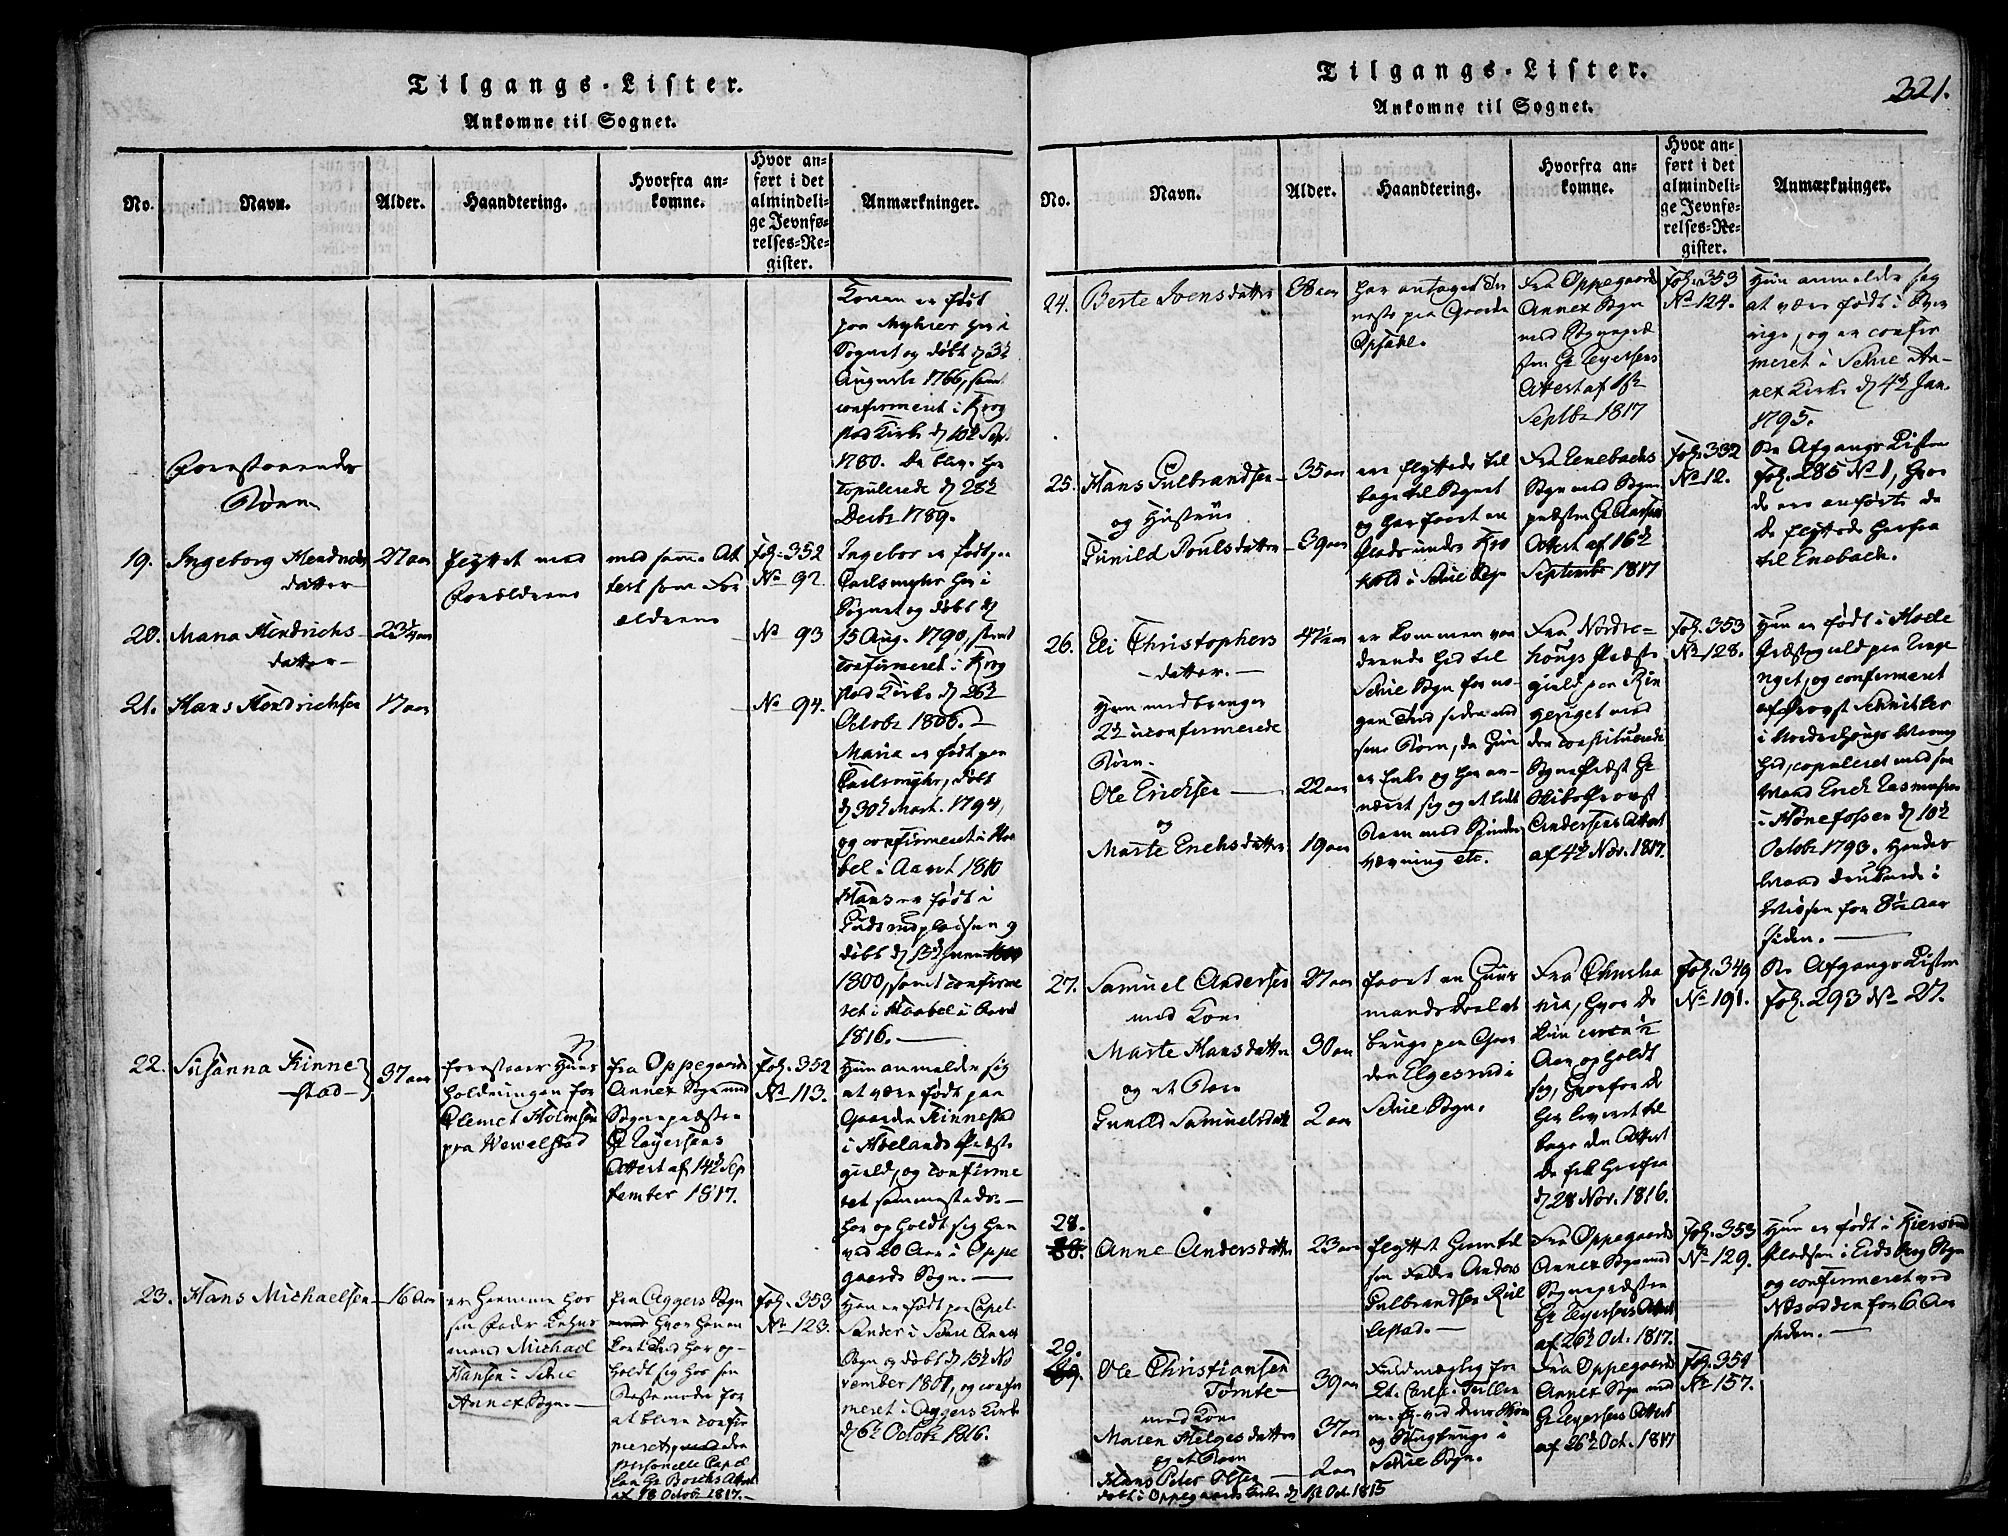 Tilgangs-Lister.
Ankomne til Sognet.
No.
Navn.
Alder.
Haandtering.
Hvorfra an-
komne.
Hvor an-
ført i det
almindeli-
ge Jevnfø-
relses-Re-
gister.
Anmærkninger.
Konen er født
paa Myhrer her i
Sognet og døbt d 3
August 1766, samt
confirmeret i Krog
stad Kirke d 10 Sept
1780. De blev her
copulerede d 28
Decbr 1789.
Foranstaaende
Børn
19. Ingeborg Hendrichs
datter
27 aar
flyttet med
Forældrene
med samme At
test som For
ældrene
fol. 352
No 92.
Ingebor er født paa
Carlsmyhr her i
Sognet og døbt d
15 Aug. 1790, samt
confirmeret i Krog
stad Kirke d 26
Octobr 1806.
20. Maria Hendrichs
datter
23 1/4 aar
No 93
Maria er født paa
Carlsmyhr, døbt
d 30 Mart. 1794,
og confirmeret i Haa
bel i Aaret 1810
21. Hans Hendrichsen
17 aar
No 94.
Hans er født i
døbt d 13 Juni
1800, samt confirme
ret i Haabel i Aaret
1816.
22. Susanna Kinne
stad
37 aar
forestaaer Huus
holdningen for
Clemet Holmsen
paa Wewelstad
fra Oppegaards
Annex Sogn med
Sognepræsten
Hr Teyersens
Attest af 14 Sep
tember 1817.
fol. 352
No 113.
Hun anmelder sig
at være født paa
Gaarden Kinnestad
i Hølands Præste
gield, og confirme
ret sammesteds.
har opholdt sig hen
ved 20 Aar i Oppe
gaards Sogn.
23. Hans Michaelsen
16 Aar
er hiemme hos
sin Fader Lehns
mand Michael
Hansen i Schie
Annex Sogn.
fra Aggers Sogn
hvor han en
kort Tid har op-
holdt sig hos sin
Bestemoder for
at blive confir
meret, med den
personelle Capel
lan Hr Borchs Attest
af 18 Octobr 1817.
fol. 353
No 123.
Han er født paa Capel-
Sander i Schie Annex
Sogn og døbt d 15 No
vember 1801, og confir
meret i Aggers Kirke
d 6 Octobr 1816.
Tilgangs-Lister.
Ankomne til Sognet.
321.
No.
Navn.
Alder.
Haandtering.
Hvorfra an-
komne.
Hvor an-
ført i det
almindeli-
ge Jevnfø-
relses-Re-
gister.
Anmærkninger.
24. Berte Svensdatter
38 aar
har antaget Tie
neste paa Gaarden
Opsahl.
Fra Oppegaards
Annex Sogn
med Sognepræ
sten Hr Teyersens
Attest af 1ste
Septbr 1817
fol. 353
No 124.
Hun anmelder sig
at være født i Sver
rige, og er confir
meret i Schie An-
nex Kirke d 4 Jan.
1795.
25. Hans Gulbrandsen
og Hustrue
Gunild Poulsdatter
35 aar
39 aar
ere flyttede til
bage til Sognet
og har faaet en
Plads under Kro
kold i Schie Sogn
Fra Enebachs
Sogn med Sogne
præsten Hr
Attest af 16
Septembr 1817
fol. 332
No 12.
See Afgangs Listen
fol. 285 No 1, hvor
de ere anførte da
de flyttede herfra
til Enebach.
26. Eli Christophers
datter.
Hun medbringer
2 uconfirmerede
Børn.
Ole Erichsen
og
Marte Erichsdatter
47 1/2 aar
22 aar
19 aar
er kommen van
drende hid til
Schie Sogn for no
gen Tid siden med
sine Børn, da hun
er Enke og har er-
næret sig og et lidet
Barn med Spinden
vævning etc.
Fra Nordre-
hougs Præste
gield paa Rin
geriget med
den constituerede
Sognepræst Hr
Stiftsprovst
Andersens Attest
af 4 Nov. 1817.
fol. 353
No 128.
Hun er født i Hole
Præstegield paa
, og confirmeret
af Provst Schnitler
i Norderhougs
, copuleret med sin
Mand Erich Rasmusen
i Hønefossen d 10
Octobr 1793. Hendes
Mand druknede i
for 8 1/2 Aar
siden.
27. Samuel Andersen
med Kone
Marte Hansdatter
og et Barn
Gunild Samuelsdatter
27 aar
30 aar
2 aar
faaet en Huus
mandsdeel at
bruge paa Gaar
den Elgesrud i
Schie Sogn.
Fra Christia
nia, hvor de
kun circa 1/2
Aar opholdt
sig, hvorfor de
her leveret til
bage den Attest
de fik herfra
d 28 Nov. 1816.
fol. 349
No 191.
See Afgangs Listen
fol. 293 No 27.
28.
Anne Andersdatter
23 aar
flyttet hiem til
sin Fader Anders
Gulbrandsen Kiil
lestad.
Fra Oppegaards
Annex Sogn med
Sognepræsten
Hr Teyersens Attest
af 26 Oct. 1817.
fol. 353
No 129.
Hun er født i
Pladsen i Eids Sogn
og confirmeret ved
Næsodden for 6 Aar
siden.
29.
Ole Christiansen
Tomte
med Kone
Maren Helgesdatter
og et Barn
Hans Peter Olsen
døbt i Oppegaards Kirke d 1ste Oct. 1815
39 aar
37 aar
2 aar
Fuldmægtig for
Lt. Carl
ved dens Skov
og Saugbrug i
Schie Sogn.
Fra Oppegaards
Annex Sogn med
Hr Teyersens Attest
af 26 Oct. 1817
fol. 354
No 157.